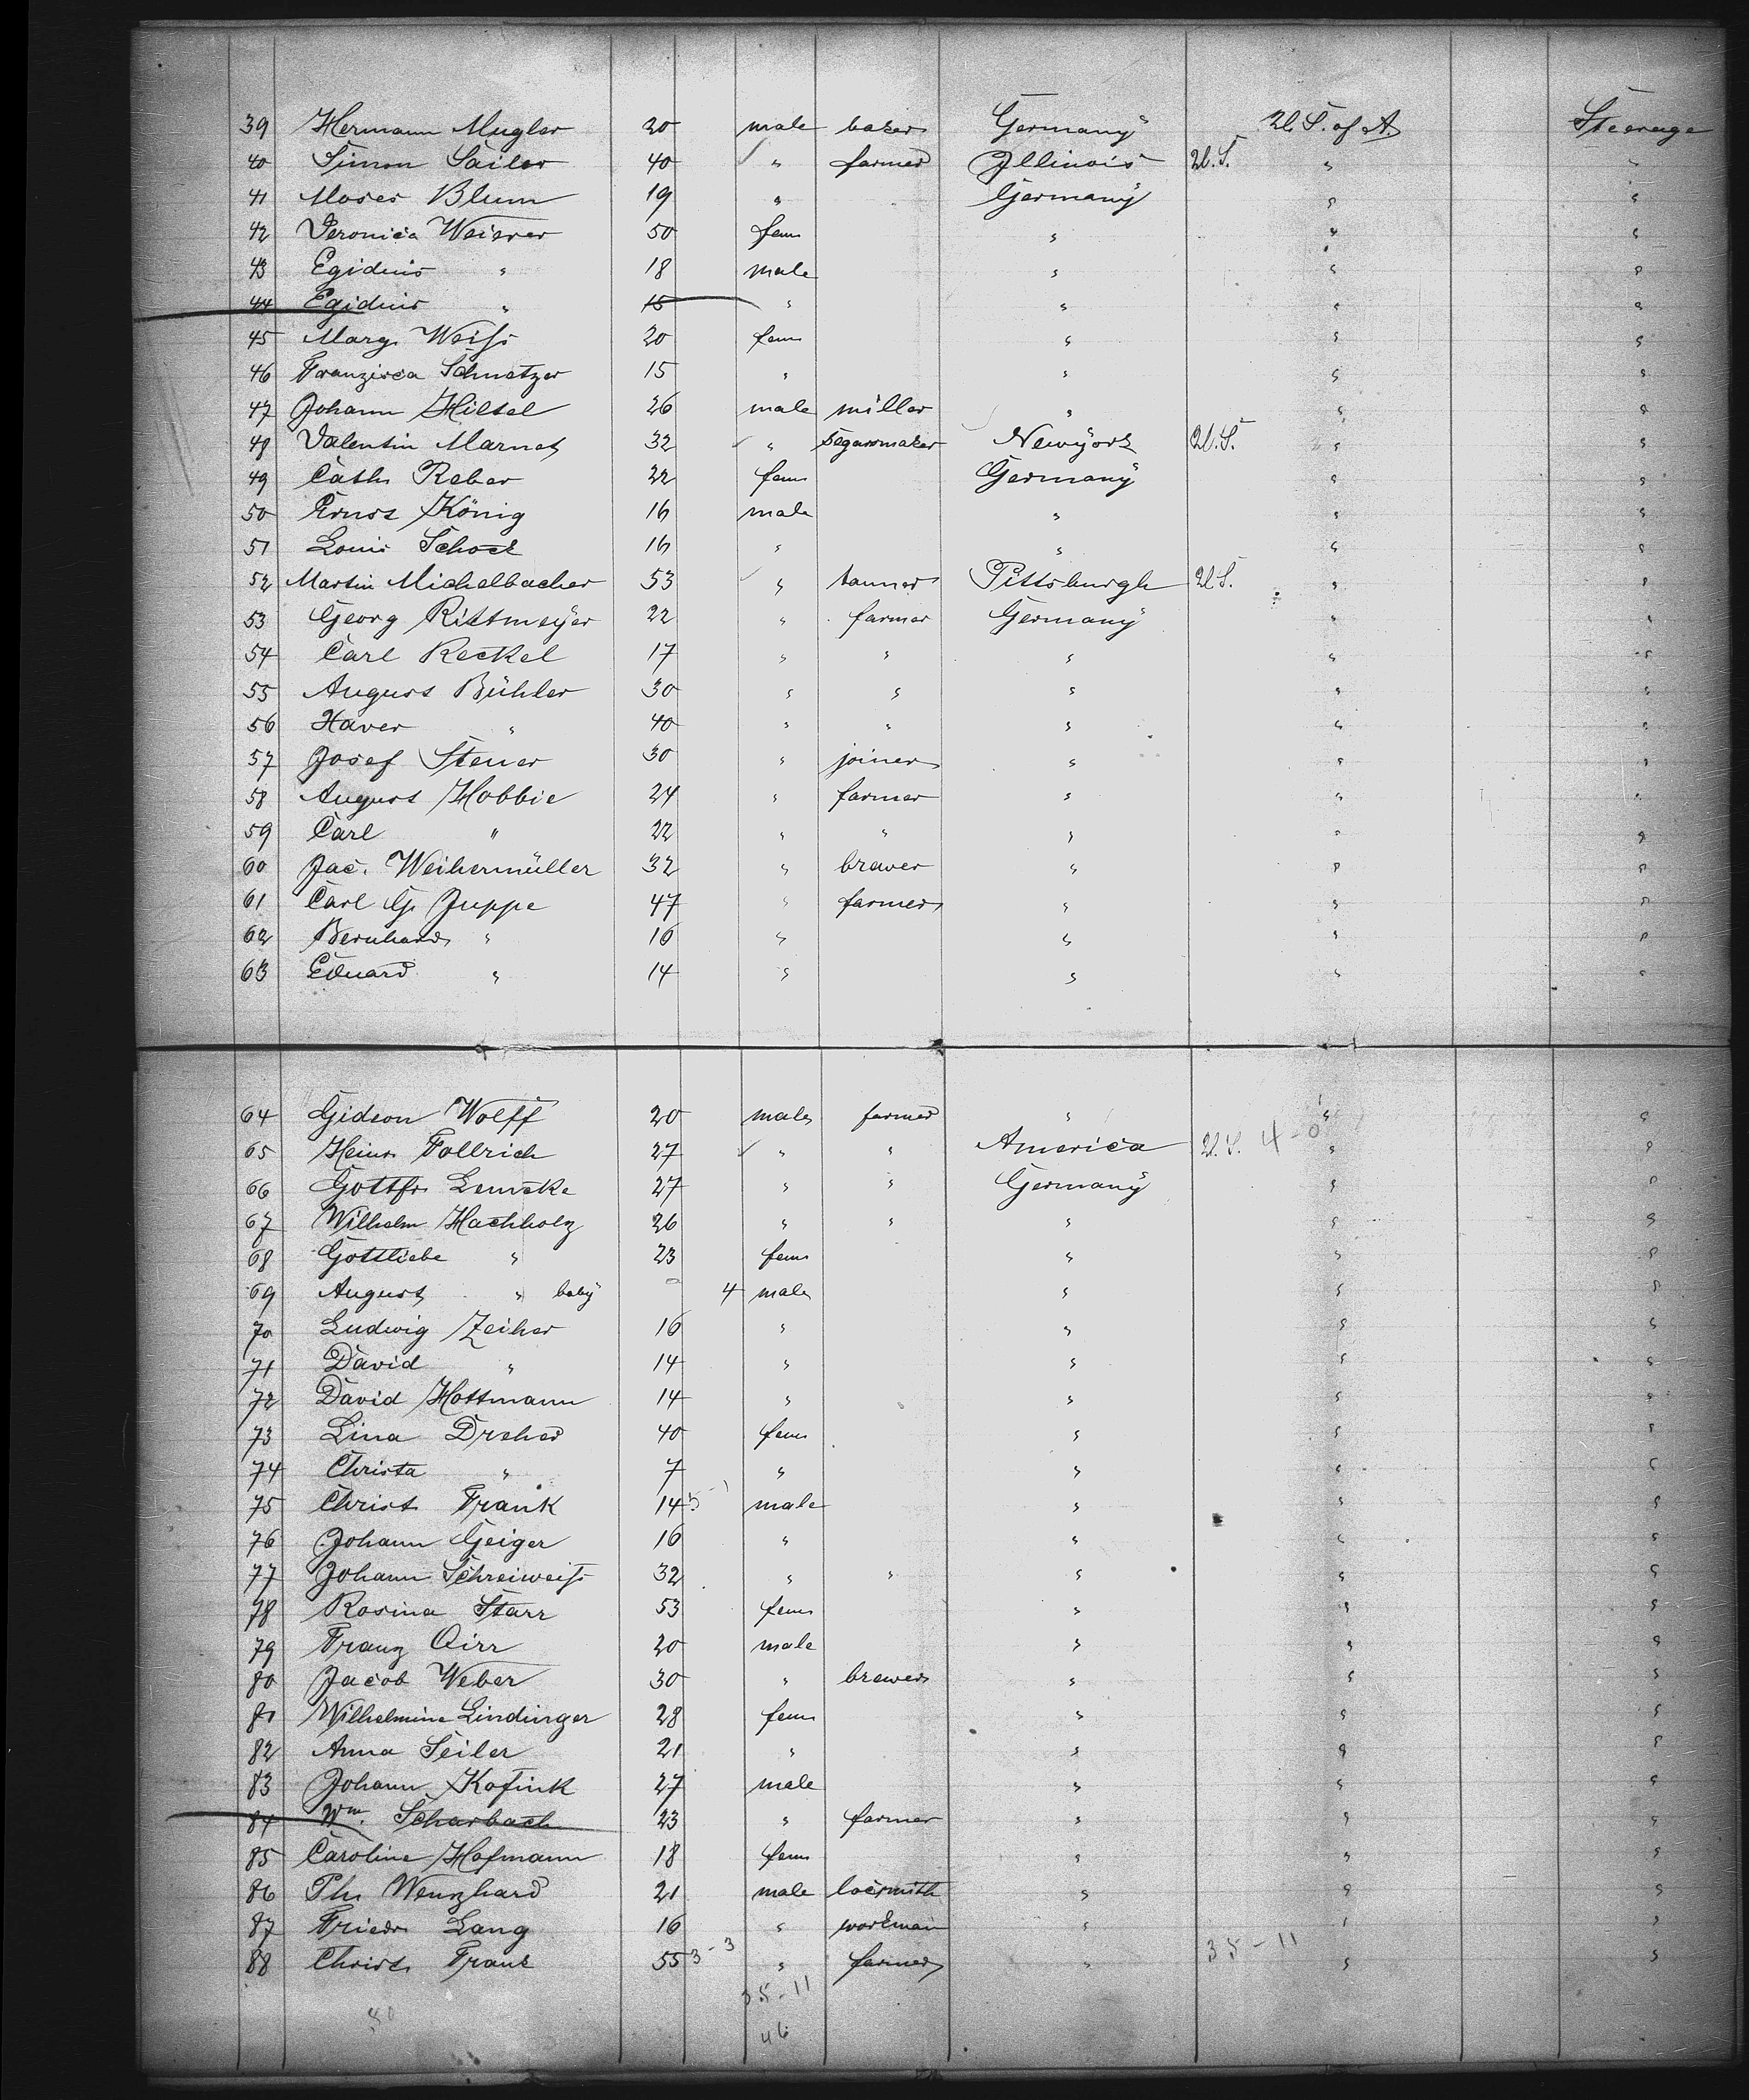 39 Hermann Mugler 20 male baker Germany U.S. of A. Steerage
40 Simon Sailer 40 " farmer Illinois U.S. " "
41 Moses Blum 19 " Germany " "
42 Veronica Weierer 50 fem " " "
43 Egidius " 18 male " " "
44 Egidius " 15 " " " "
45 Marg. Weiss 20 fem " " "
46 Franzisca Schmetzer 15 " " " "
47 Johann Hiltel 26 male miller " " "
48 Valentin Marnet 32 " Segarrmaker Newyork U.S. " "
49 Cath. Reber 22 fem Germany " "
50 Ernst König 16 male " " "
51 Louis Schock 16 " " " "
52 Martin Michelbacher 53 " tanner Pittsburgh U.S. " "
53 Georg Rittmeyer 22 " farmer Germany " "
54 Carl Reckel 17 " " " " "
55 August Bühler 30 " " " " "
56 Xaver " 40 " " " " "
57 Josef Stener 30 " joiner " " "
58 August Hobbie 24 " farmer " " "
59 Carl " 22 " " " " "
60 Jac. Weihermüller 32 " brewer " " "
61 Carl G. Juppe 47 " farmer " " "
62 Bernhard " 16 " " " "
63 Eduard " 14 " " " "
64 Gideon Wolff 20 male farmer " " "
65 Heinr. Follrich 27 " " America U.S. 4-0 " "
66 Gottfr. Lemcke 27 " " Germany " "
67 Wilhelm Hachholz 26 " " " " "
68 Gottliebe " 23 fem " " "
69 August " baby 4 male " " "
70 Ludwig Zeiher 16 " " " "
71 David " 14 " " " "
72 David Hottmann 14 " " " "
73 Lina Dreher 40 fem " " "
74 Christa " 7 " " " "
75 Christ. Frank 14 male " " "
76 Johann Geiger 16 " " " "
77 Johann Schreiweiss 32 " " " " "
78 Rosina Starr 53 fem " " "
79 Franz Qirr 20 male " " "
80 Jacob Weber 30 " brewer " " "
81 Wilhelmine Lindinger 28 fem " " "
82 Anna Seiler 21 " " " "
83 Johann Kofink 27 male " " "
84 Wm. Scharbach 23 " farmer " " "
85 Caroline Hofmann 18 fem " " "
86 Ph. Wenzhard 21 male locsmith " " "
87 Friedr. Lang 16 " workman " " "
88 Christ. Frank 55 3-3 " farmer " 35-11 " "
35-11
46